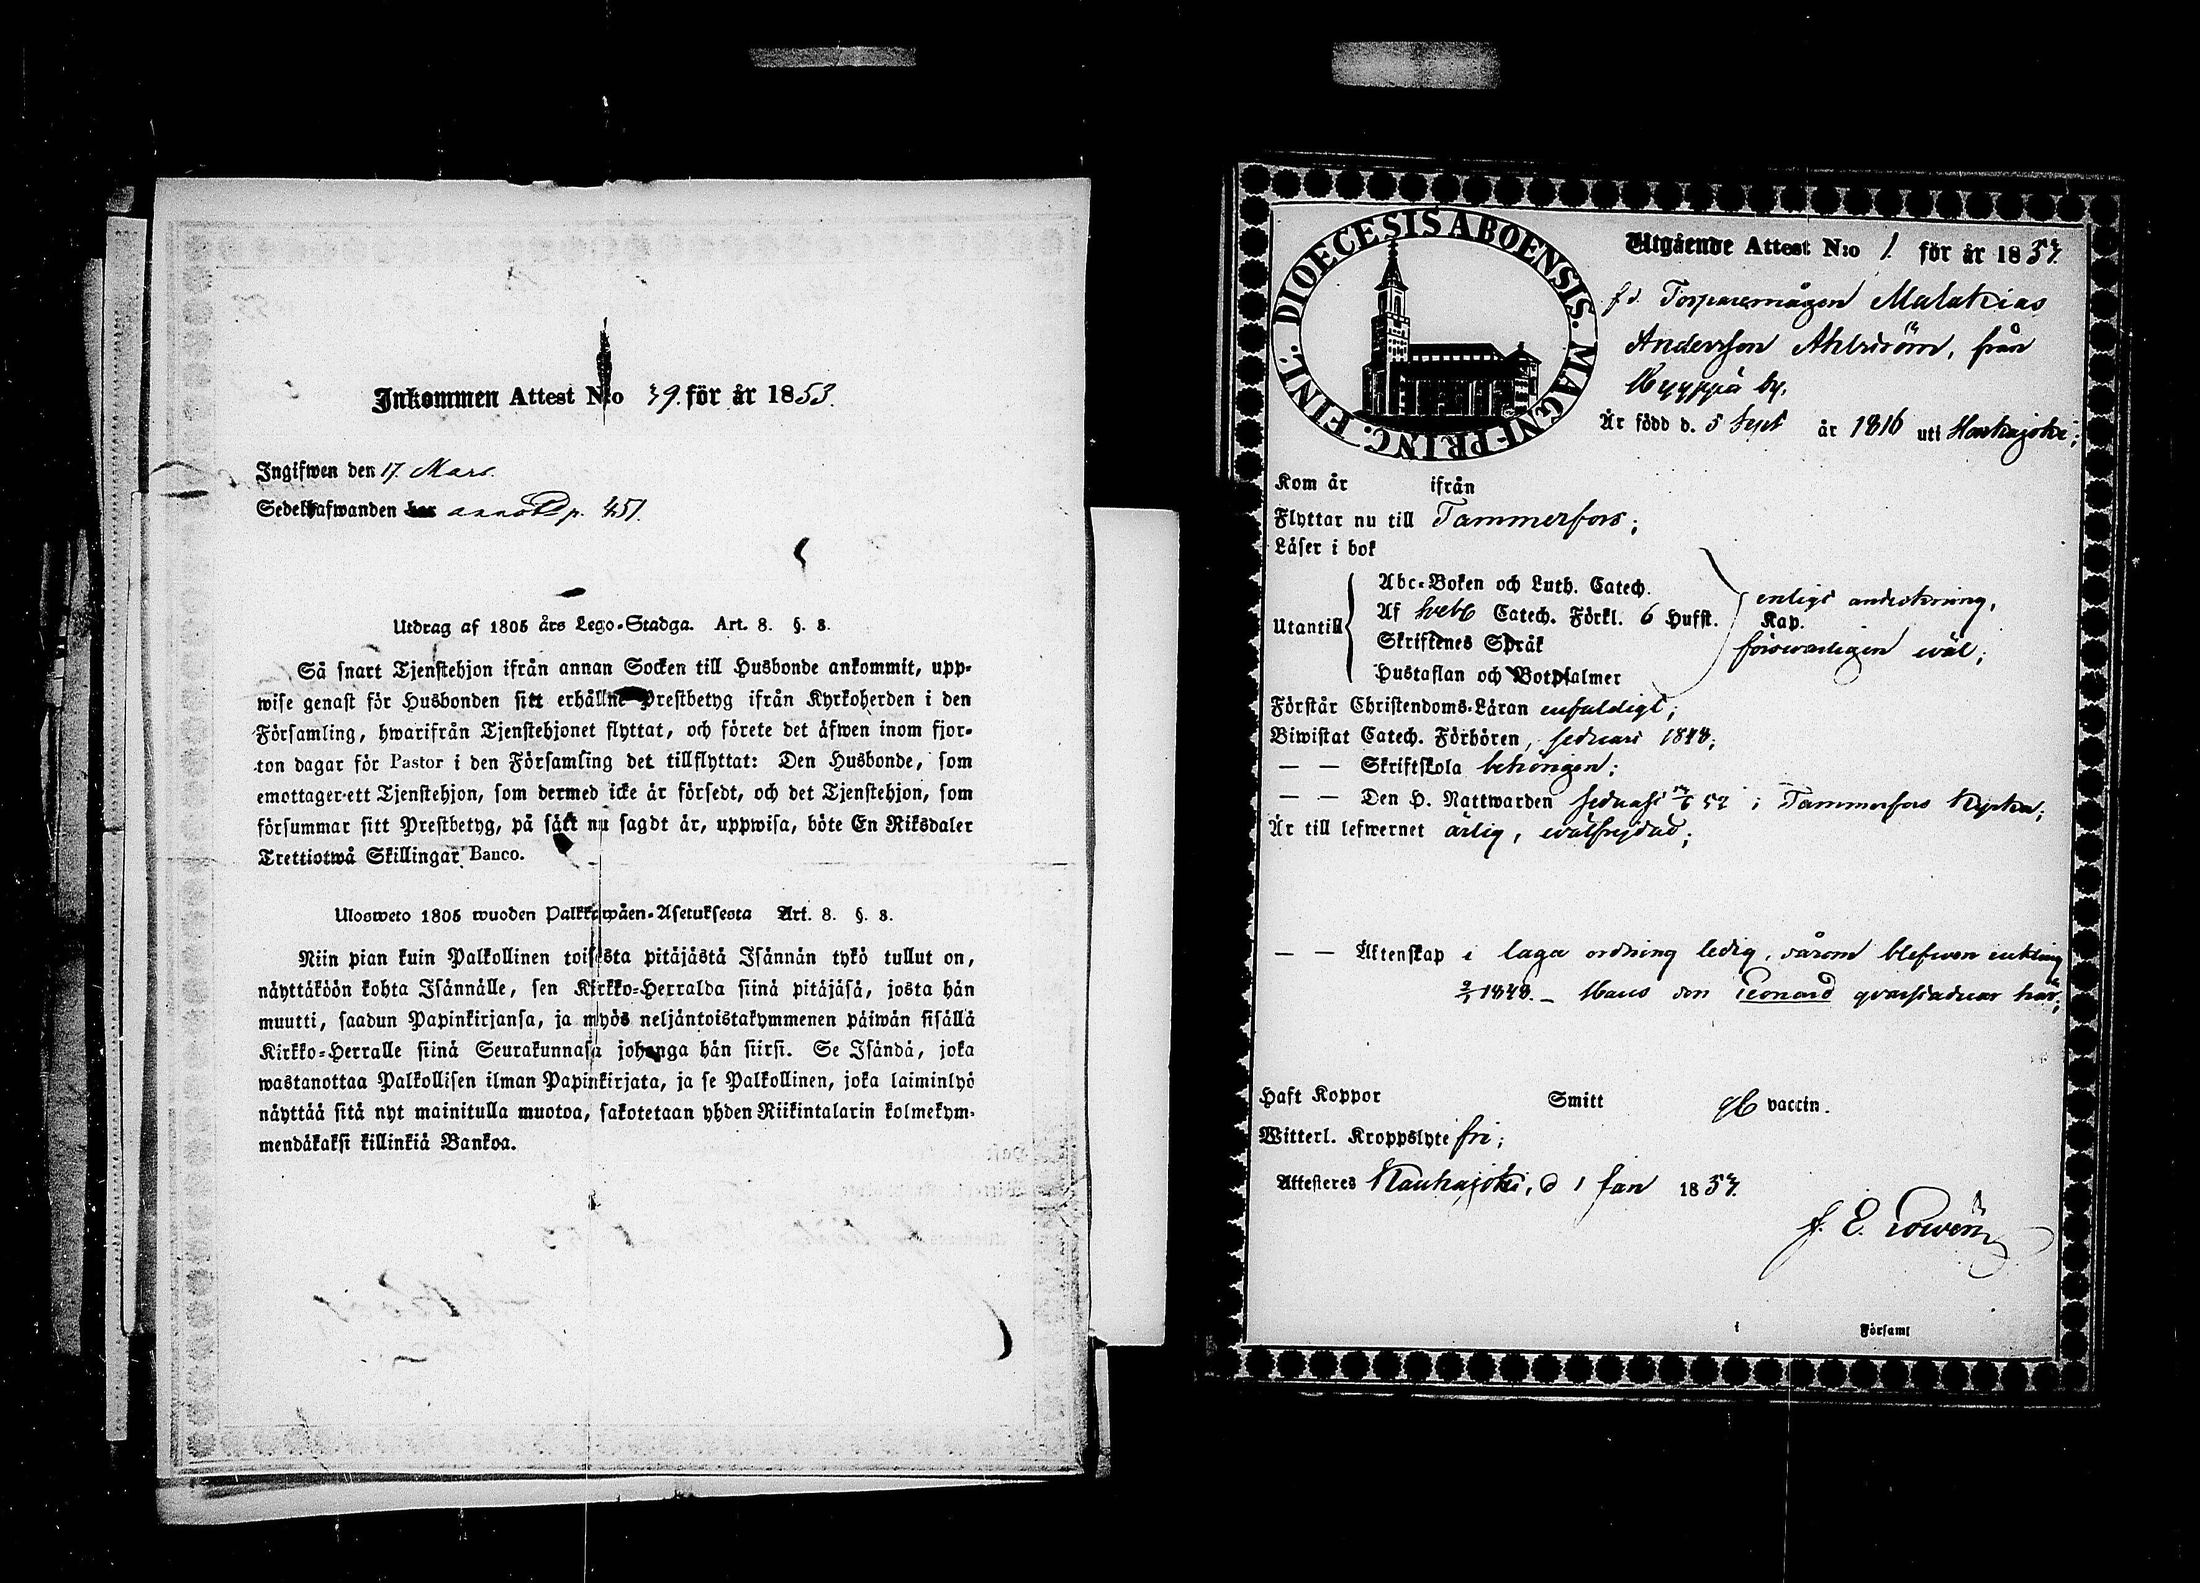 Inkommen Attest N:o 39. för år 1853.
Ingifwen den 17. Mars.
Sedelhafwanden har p. 451.
Utdrag af 1805 års Lego-Stadga. Art. 8. §. 8.
Så snart Tjenstehjon ifrån annan Socken till Husbonde ankommit, upp-
wise genast för Husbonden sitt erhållne Prestbetyg ifrån Kyrkoherden i den
Församling, hwarifrån Tjenstehjonet flyttat, och förete det äfwen inom fjor-
ton dagar för Pastor i den Församling det tillflyttat: Den Husbonde, som
emottager ett Tjenstehjon, som dermed icke är försedt, och det Tjenstehjon, som
försummar sitt Prestbetyg, på sätt nu sagdt är, uppwisa, böte En Riksdaler
Trettiotwå Skillingar Banco.
Ulosweto 1805 wuoden Palkkawäen-Asetuksesta Art. 8. §. 8.
Niin pian kuin Palkollinen toisesta pitäjästä Isännän tykö tullut on,
näyttäköön kohta Isännälle, sen Kirkko-Herralda siinä pitäjäsä, josta hän
muutti, saadun Papinkirjansa, ja myös neljäntoistakymmenen päiwän sisällä
Kirkko-Herralle siinä Seurakunnasa johonga hän siirsi. Se Isändä, joka
wastanottaa Palkollisen ilman Papinkirjata, ja se Palkollinen, joka laiminlyö
näyttää sitä nyt mainitulla muotoa, sakotetaan yhden Riikintalarin kolmekym-
mendäkaksi killinkiä Bankoa.
DIOECESIS ABOENSIS. MAGNI-PRINC. FINL.
Utgående Attest N:o 1 för år 1852.
f.d. Torparemågen Malakias
Andersson Ahlström, från
Hyyppä by.
Är född d. 5 Sept år 1816 uti Kauhajoki;
Kom år ifrån
Flyttar nu till Tammerfors;
Läser i bok
Utantill
Abc-Boken och Luth. Catech.
Af Catech. Förkl. 6 Hufst. Kap.
Skriftenes Språk
Hustaflan och Botpsalmer
enligt anteckning,
försvarligen wäl;
Förstår Christendoms-Läran enfaldigt;
Biwistat Catech. Förhören, sednast 1848;
— — Skriftskola behörigen;
— — Den H. Nattwarden sednast i Tammerfors Kyrka;
Är till lefwernet ärlig, wälfrejdad;
— — Äktenskap i laga ordning ledig, såsom blefwen enkling
1848. – Hans son Leonard qvarstadnar här;
Haft Koppor Smitt vaccin.
Witterl. Kroppslyte fri;
Attesteres Kauhajoki, d 1 Jan 1852.
Församl